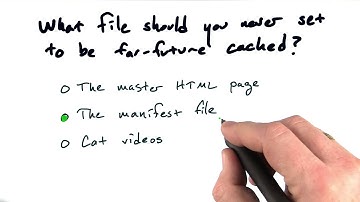 What file should you never set
to be far-future cached?
The master HTML page
The manifest file
Cat videos